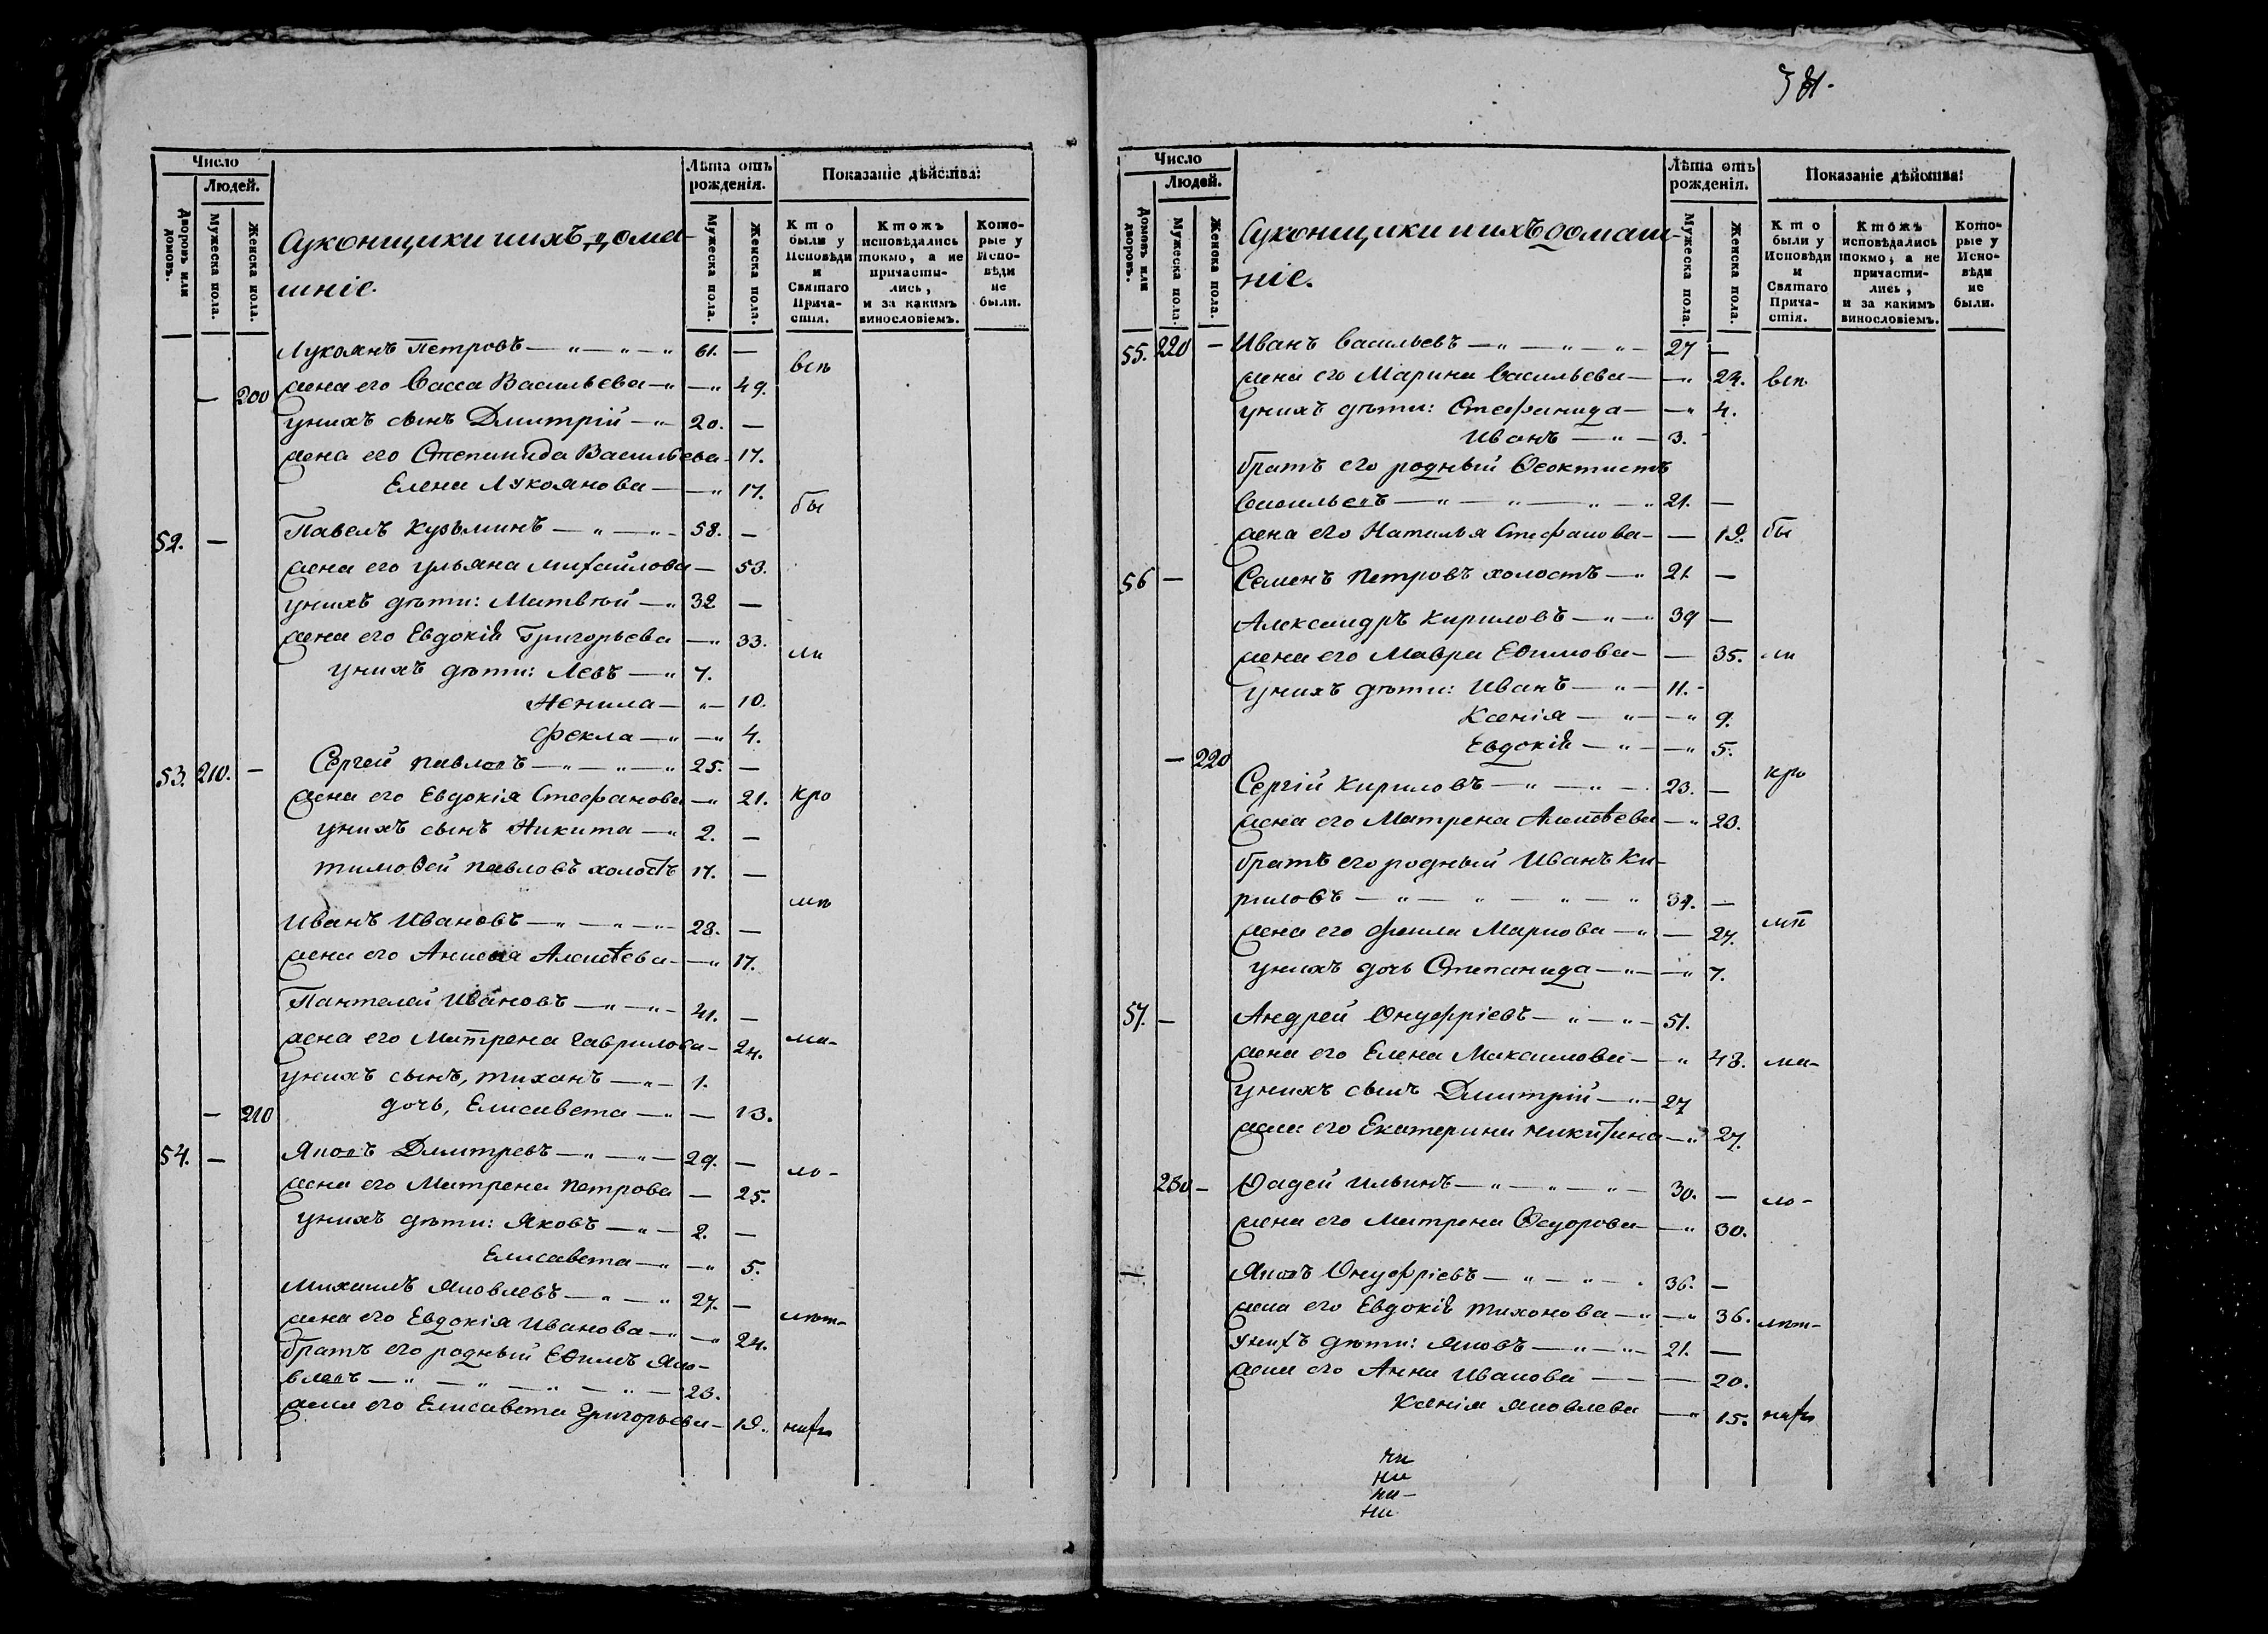 Число
Людей.
Дворовъ или домовъ.
Мужеска пола.
Женска пола.
Суконщики и ихъ дома-
шніе.
Лѣта отъ рожденія.
Мужеска пола.
Женска пола.
Показаніе дѣйства:
Кто были у Исповѣди и Святаго Прича-стія.
Ктожъ исповѣдались токмо, а не причасти-лись, и за какимъ винословіемъ.
Кото-рые у Испо-вѣди не были.
Лукоянъ Петровъ — „ — „ — „ 61. —
— 200 жена его Васса Васильева — „ — „ 49. всѣ
у нихъ сынъ Дмитрій — „ — 20. —
жена его Степанида Васильева — 17.
Елена Лукоянова — — „ 17.
бы
52. — Павелъ Кузьминъ — „ — „ — 58. —
жена его Ульяна Михайлова — 53.
у нихъ дѣти: Матвѣй — „ 32 —
жена его Евдокія Григорьева — „ 33. ли
у нихъ дѣти: Левъ — „ 7.
Ненила — „ — 10.
Фекла — „ — „ 4.
53. 210. — Сергей Павловъ — „ — „ — „ 25. —
жена его Евдокія Стефанова — „ 21. кро
у нихъ сынъ Никита — „ 2. —
Тимоѳей Павловъ холостъ 17. —
мѣ
Иванъ Ивановъ — „ — „ — „ — 28. —
жена его Алексѣева — — „ 17.
Пантелей Ивановъ — „ — „ — 41. —
жена его Матрена Гаврилова — 24. ма-
у нихъ сынъ, Тихонъ — „ — 1.
— 210 дочь, Елисавета — „ — 13.
54. — Яковъ Дмитревъ — „ — „ — 29. —
ло-
жена его Матрена Петрова — 25.
у нихъ дѣти: Яковъ — „ — 2. —
Елисавета — „ — „ 5.
Михаилъ Яковлевъ — „ — „ 27. —
лѣт-
жена его Евдокія Иванова — „ — „ 24.
братъ его родный Еѳимъ Яко-
влевъ — „ — „ — „ — „ — 23.
жена его Елисавета Григорьева — 19. нихъ
381.
Число
Людей.
Домовъ или дворовъ.
Мужеска пола.
Женска пола.
Суконщики и ихъ домаш-
ніе.
Лѣта отъ рожденія.
Мужеска пола.
Женска пола.
Показаніе дѣйства:
Кто были у Исповѣди и Святаго Прича-стія.
Ктожъ исповѣдались токмо, а не причасти-лись, и за какимъ винословіемъ.
Кото-рые у Испо-вѣди не были.
55. 220 — Иванъ Васильевъ — „ — „ — „ — 27 —
жена его Марина Васильева — — „ 24. всѣ
у нихъ дѣти: Стефанида — — „ 4.
Иванъ — „ — 3. -
братъ его родный Ѳеоктистъ
Васильевъ — „ — „ — „ — „ 21. —
жена его Наталья Стефанова — — 19. бы
56 — Семенъ Петровъ холостъ — „ 21 —
Александръ Кириловъ — „ — „ 39 —
жена его Мавра Еѳимова — — 35. ли
у нихъ дѣти: Иванъ — „ — 11. -
Ксенія — „ — — „ 9.
— 220 Евдокія — „ — — „ 5.
кро
Сергій Кириловъ — „ — „ — 23. —
жена его Матрена Алексѣева — „ 23.
братъ его родный Иванъ Ки-
риловъ — „ — „ — „ — „ 34. —
жена его Маркова — „ — 24. мѣ
у нихъ дочь Степанида — „ — — „ 7.
57. — Андрей Онуфріевъ — „ — „ — 51.
жена его Елена Максимова — — „ 48. ма-
у нихъ сынъ Дмитрій — „ — 27
жена его Екатерина Никитина — „ 27.
230 — Ѳадей Ильинъ — „ — „ — „ — 30. — ло-
жена его Матрена Ѳедорова — — „ 30.
— Яковъ Онуфріевъ — „ — „ — „ 36. —
жена его Евдокія Тихонова — „ — „ 36. лѣт-
у нихъ дѣти: Яковъ — „ — „ — 21. —
жена его Анна Иванова — — — 20.
Ксенія Яковлева — „ 15. нихъ
ни
ни
ни -
ни